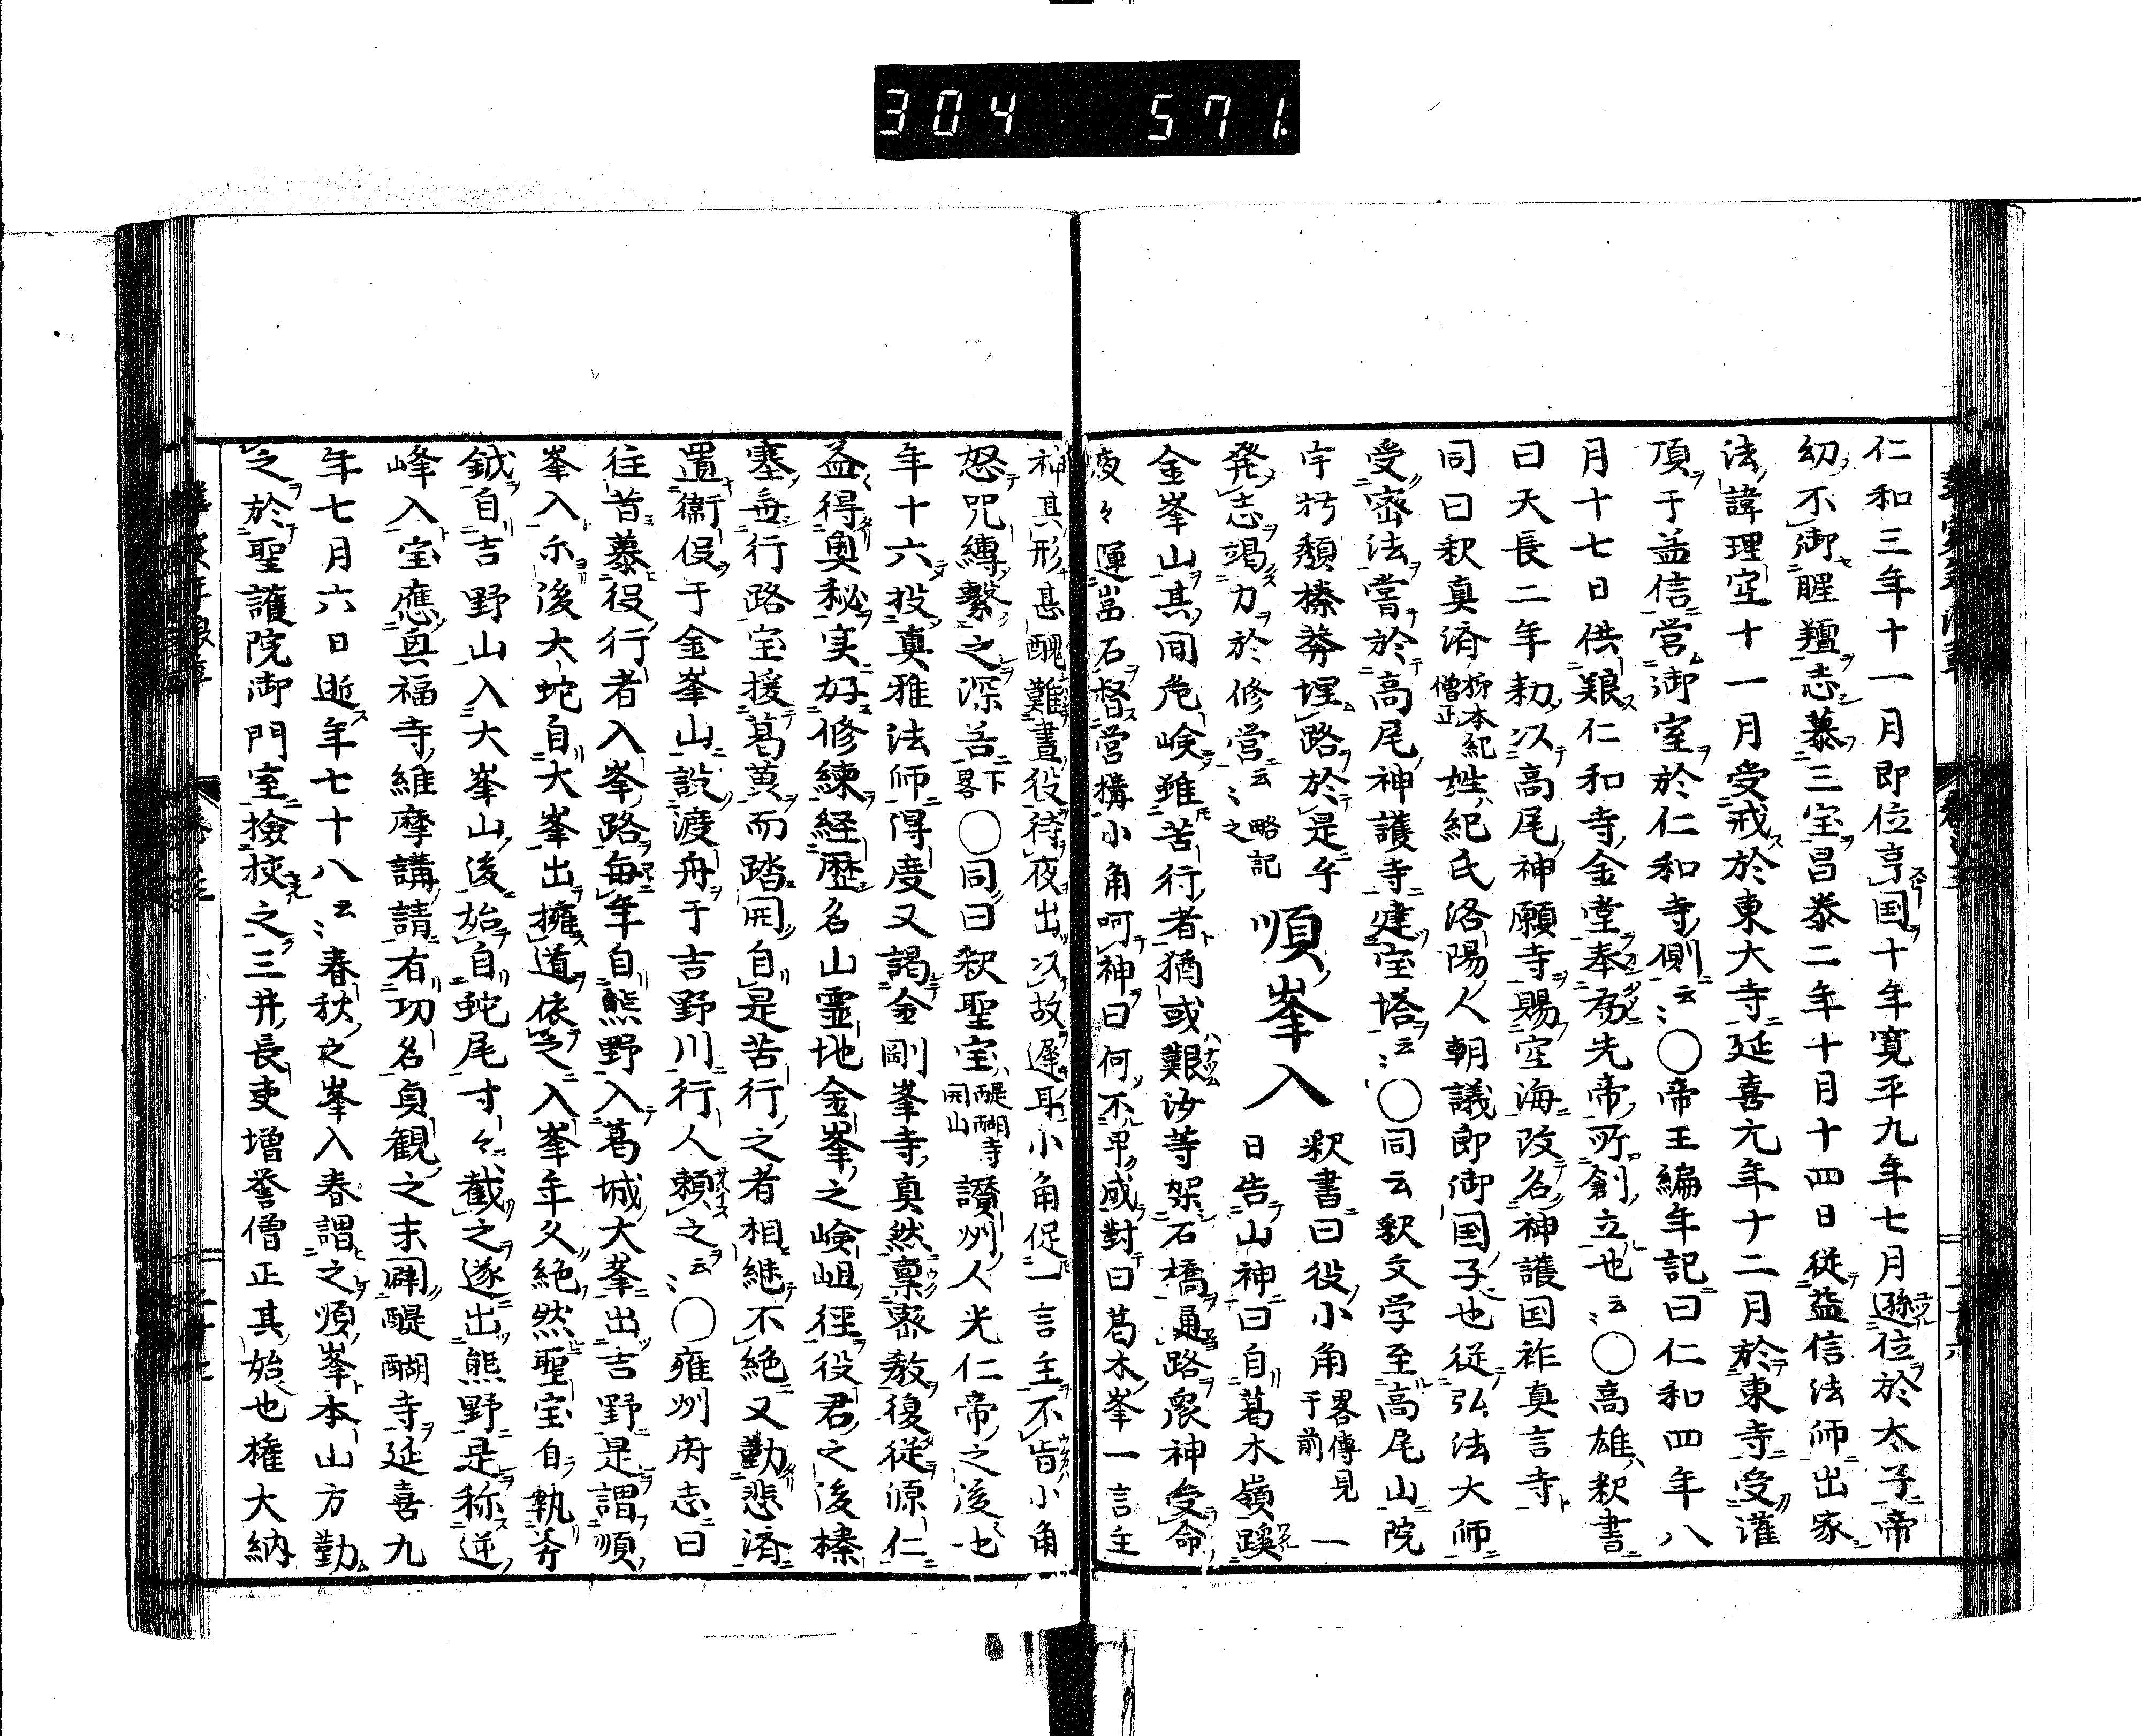 304 571.
仁和三年十一月即位亨国十年寛平九年七月遜位於太子帝
幼不御腥羶志慕三宝昌泰二年十月十四日従益信法師出家
法諱理空十一月受戒於東大寺延喜元年十二月於東寺受灌
頂于益信営御室於仁和寺側云〻〇帝王編年記曰仁和四年八
月十七日供艱仁和寺金堂奉為先帝所創立也云〻〇高雄釈書
曰天長二年勅以高尾神願寺賜空海改名神護国祚真言寺
同曰釈真済柿本紀僧正姓紀氏洛陽人朝議郎御国子也従弘法大師
受密法嘗於高尾神護寺建宝塔云〻〇同云釈文学至高尾山院
宇朽頽榛莽埋路於是乎
発志竭力於修営云〻略記之
順峯入
釈書曰役小角畧傳見于前一
日告山神曰自葛木嶺蹊
金峯山其間危嶮雖苦行者猶或艱汝等架石橋通路衆神受命
夜々運嵓石督営構小角呵神曰何不早成對曰葛木峯一言主
神其形甚醜難晝役待夜出以故遅耳小角促一言主不肯小角
怒咒縛繋之深谷下畧〇同曰釈聖宝醍醐寺開山讃州人光仁帝之後也
年十六投真雅法師得度又謁金剛峯寺真然稟密教復従源仁
益得奥秘実好修練経歴名山霊地金峯之嶮岨径役君之後榛
塞無行路宝援葛藟而踏開自是苦行之者相継不絶又勤悲済
置衛伇于金峯山設渡舟于吉野川行人頼之云〻〇雍州府志曰
往昔慕役行者入峯路毎年自熊野入葛城大峯出吉野是謂順
峯入尓後大蛇自大峯出擁道依之入峯年久絶然聖宝自執斧
鉞自吉野山入大峯山後始自蛇尾寸々截之遂出熊野是称逆
峰入宝應興福寺維摩講請有功名貞観之末闢醍醐寺延喜九
年七月六日逝年七十八云〻春秋之峯入春謂之順峯本山方勤
之於聖護院御門室撿挍之三井長吏増誉僧正其始也権大納